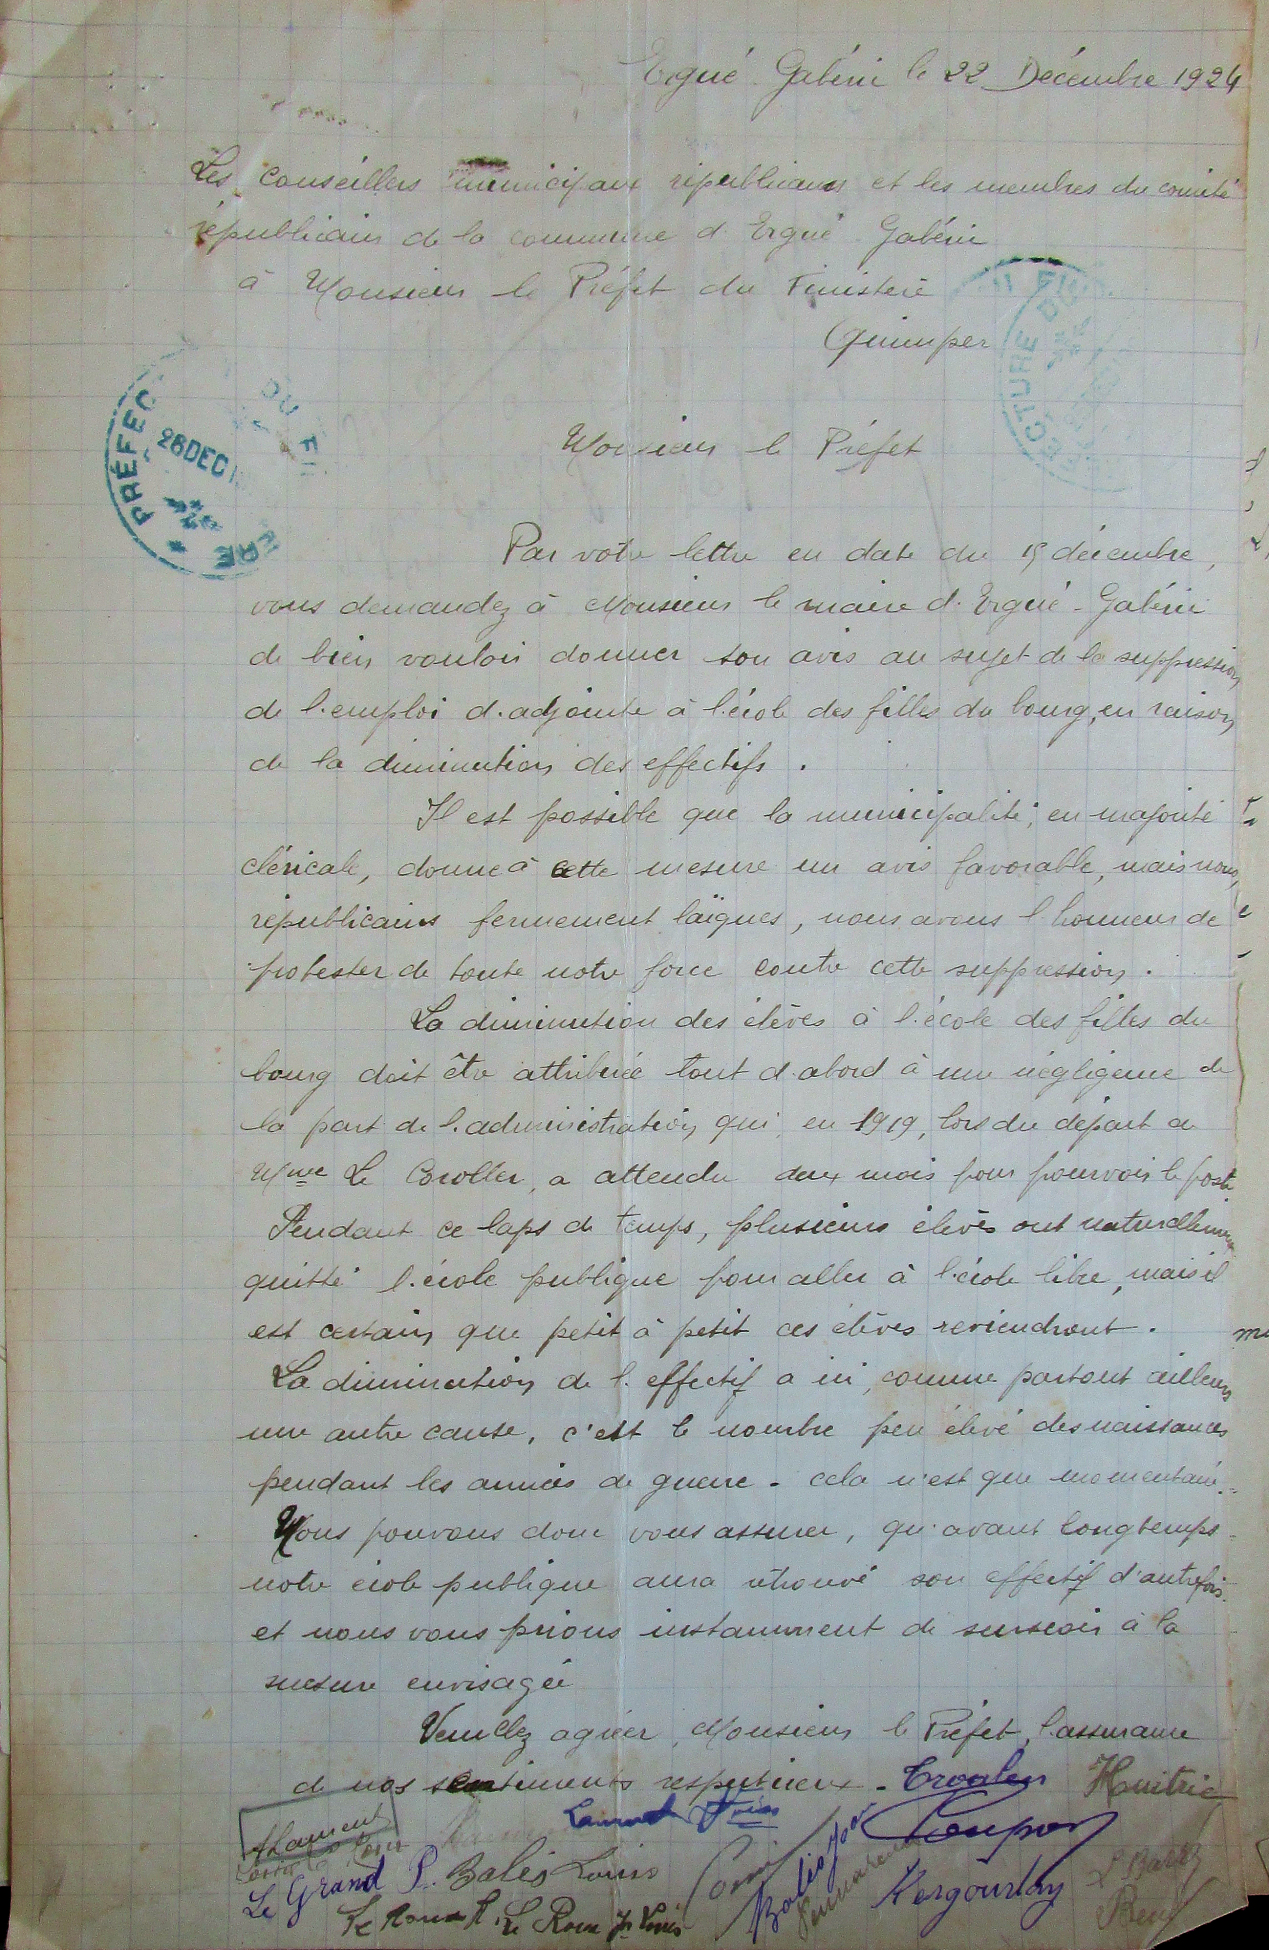 Ergué-Gabéric le 22 Décembre 1924
Les conseillers municipaux républicains et les membres du comité
républicain de la commune d'Ergué-Gabéric
à Monsieur le Préfet du Finistère
Quimper
PRÉFECTURE DU FI
PRÉFEC DU FI ERE
26 DEC
Monsieur le Préfet
Par votre lettre en date du 19 décembre,
vous demandez à Monsieur le maire d'Ergué-Gabéric
de bien vouloir donner son avis au sujet de la suppression
de l'emploi d'adjointe à l'école des filles du bourg, en raison
de la diminution des effectifs.
Il est possible que la municipalité, en majorité
cléricale, donne à cette mesure un avis favorable, mais nous,
républicains fermement laïques, nous avons l'honneur de
protester de toute notre force contre cette suppression.
La diminution des élèves à l'école des filles du
bourg doit être attribuée tout d'abord à une négligence de
la part de l'administration qui, en 1919, lors du départ de
Mme Le Coroller, a attendu deux mois pour pourvoir le poste
Pendant ce laps de temps, plusieurs élèves ont naturellement
quitté l'école publique pour aller à l'école libre, mais il
est certain que petit à petit ces élèves reviendront.
La diminution de l'effectif a ici, comme partout ailleurs
une autre cause, c'est le nombre peu élevé des naissances
pendant les années de guerre. cela n'est que momentané.
Nous pouvons donc vous assurer, qu'avant longtemps
notre école publique aura retrouvé son effectif d'autrefois
et nous vous prions instamment de surseoir à la
mesure envisagée
Veuillez agréer, Monsieur le Préfet, l'assurance
de nos sentiments respectueux.
Huitric
Laurent
Le Grand P. Balès Louis
Balès Jean
Kergourlay
Le Roux Jn Louis